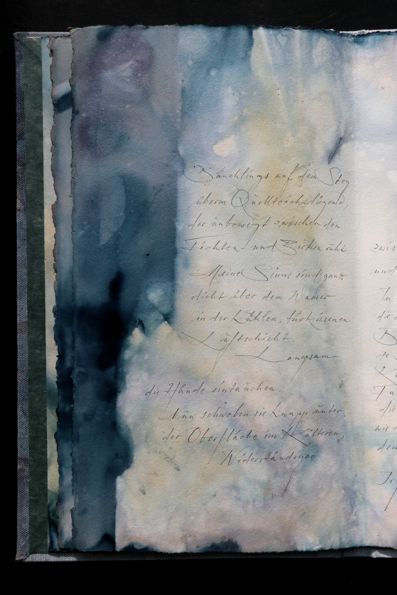 Bäuchlings auf dem Steg
überm Quellteich liegend,
der unbewegt zwischen den
Fichten- und Birken ruht
Meine Sinne sind ganz
dicht über dem Wasser
in der kühlen, türkisenen
Luftschicht
Langsam
die Hände eintauchen
Nun schweben sie knapp unter
der Oberfläche im Kälteren,
Widerständigen
zwis
und
In
die